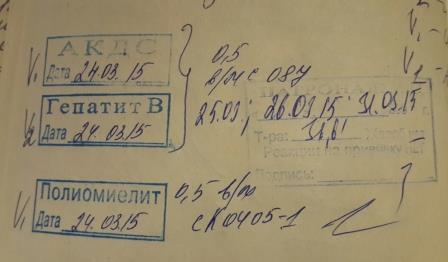 АКДС
V₁ Дата 24.03.15
0,5
в/м с 087
Гепатит В
V₂ Дата 24.03.15
ПАТРОНА
25.03; 26.03.15 31.03.15
Т-ра: 36,6
Реакции на прививку нет
Подпись:
Полиомиелит
V₁ Дата 24.03.15
0,5 в/м
с К0405-1
V₁ -
V₂ -